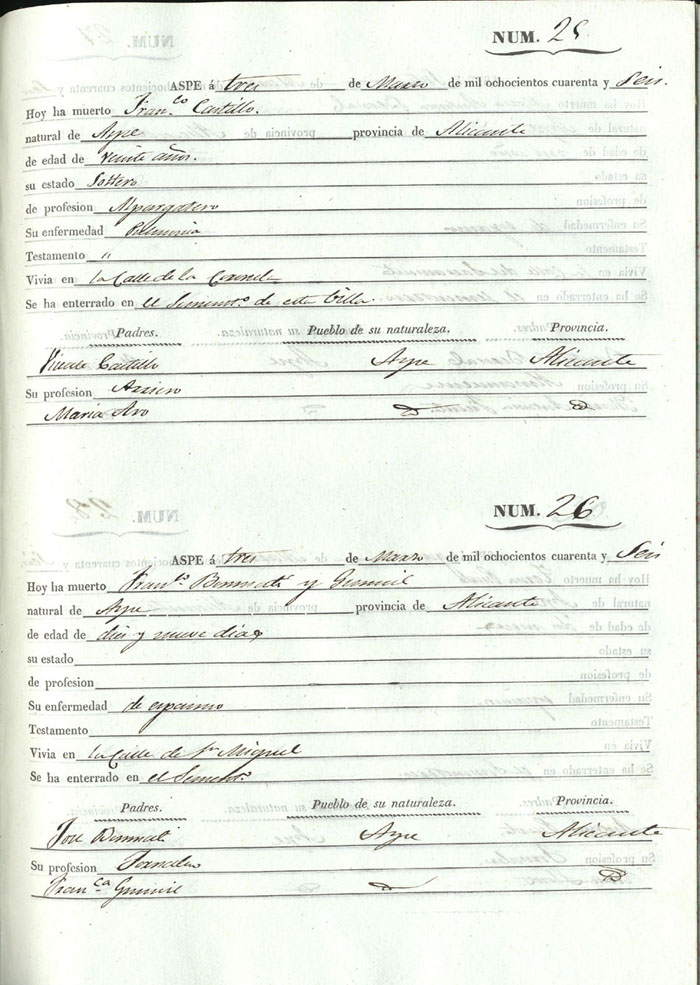 NUM. 25
ASPE á tres de Marzo de mil ochocientos cuarenta y Seis.
Hoy ha muerto Fran.co Castillo.
natural de Aspe provincia de Alicante
de edad de veinte años.
su estado Soltero
de profesion Alpargatero
Su enfermedad Pulmonia
Testamento "
Vivia en la Calle de la Coronela
Se ha enterrado en el Sement.o de esta Villa.
Padres. Pueblo de su naturaleza. Provincia.
Vicente Castillo Aspe Alicante
Su profesion Arriero
Maria
NUM. 26
ASPE á tres de Marzo de mil ochocientos cuarenta y Seis
Hoy ha muerto Fran.co y
natural de Aspe provincia de Alicante
de edad de dies y nueve dias
su estado
de profesion
Su enfermedad de espasmo
Testamento
Vivia en la Calle de Sn Miguel
Se ha enterrado en el Sement.o
Padres. Pueblo de su naturaleza. Provincia.
Jose Aspe Alicante
Su profesion
Fran.ca